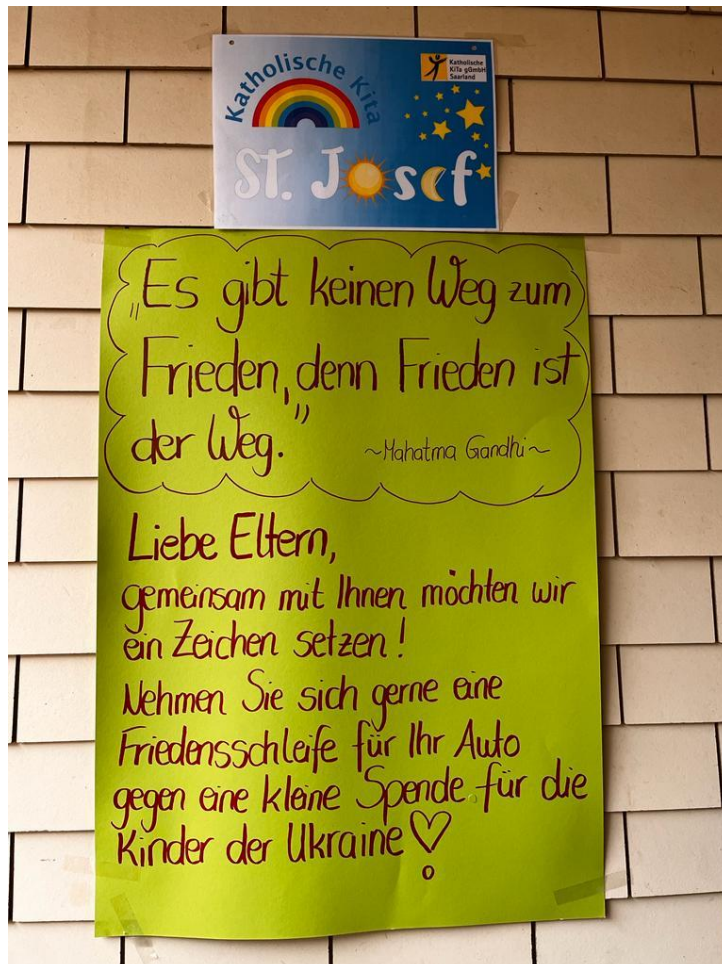 Katholische Kita
Katholische
KiTa gGmbH
Saarland
ST. Josef
„Es gibt keinen Weg zum
Frieden, denn Frieden ist
der Weg.”
~Mahatma Gandhi~
Liebe Eltern,
gemeinsam mit Ihnen möchten wir
ein Zeichen setzen!
Nehmen Sie sich gerne eine
Friedensschleife für Ihr Auto
gegen eine kleine Spende für die
Kinder der Ukraine